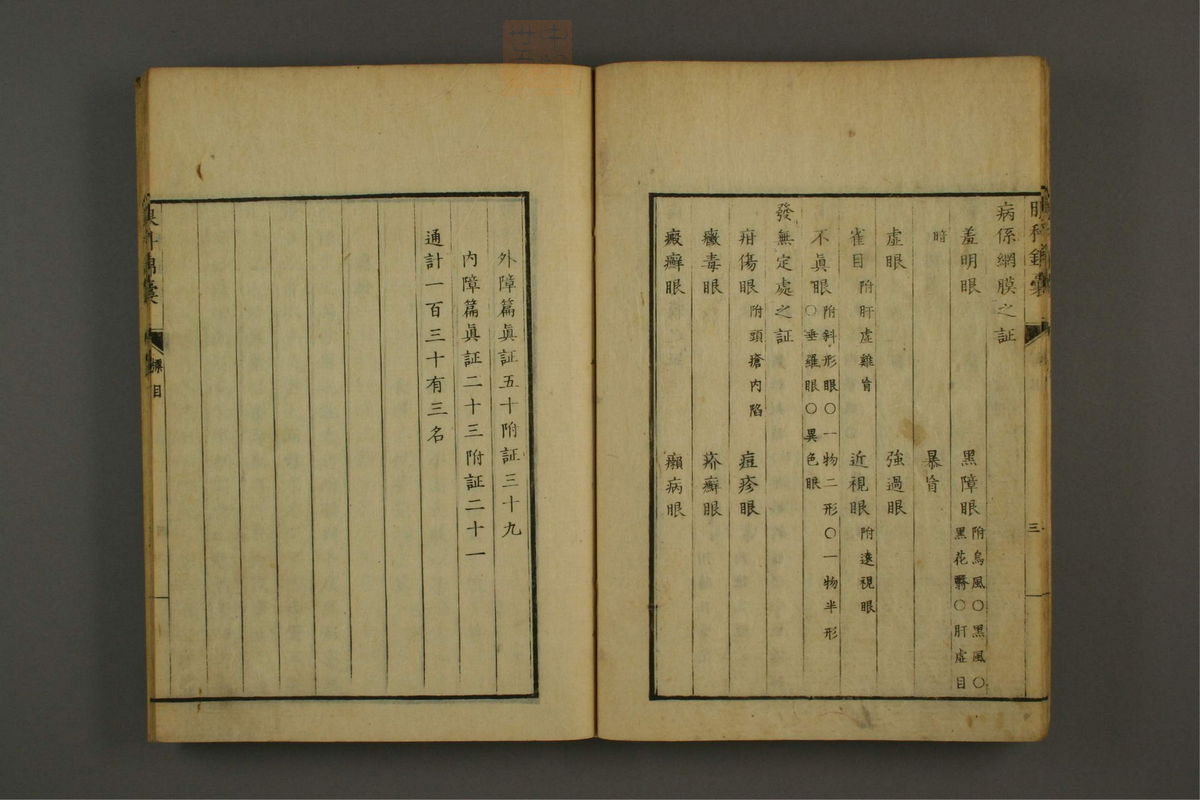 病係網膜之証
羞明眼
黑障眼 附烏風○黑風○
黑花翳○肝虛目
暗
暴盲
虛眼
強過眼
雀目 附肝虛雞盲
近視眼 附遠視眼
不眞眼 附斜形眼○一物二形○一物半形
○垂羅眼○異色眼
發無定處之証
疳傷眼 附頭瘡內陷
痘疹眼
黴毒眼
疥癬眼
癜癬眼
癩病眼
三
外障篇眞証五十附証三十九
內障篇眞証二十三附証二十一
通計一百三十有三名
標目